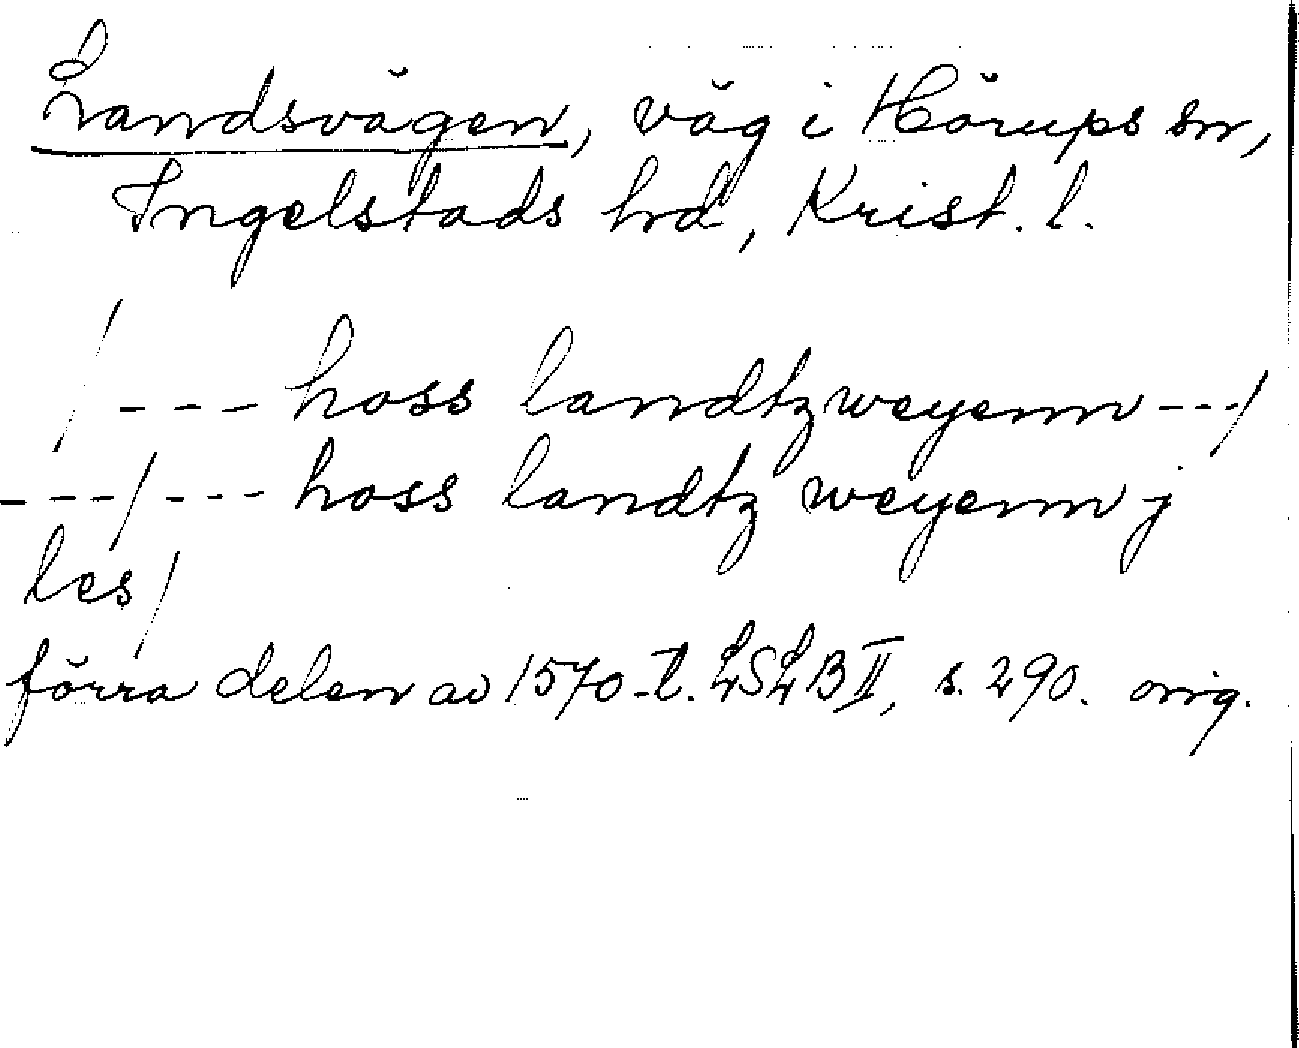 Landsvägen, väg i Hörups sn,
Ingelstads hd, Krist. l.
/--- hoss landtzweyenn ---/
---/--- hoss landtz weyenn j
les/
förra delen av 1570-t. LSLB II, s. 290. orig.